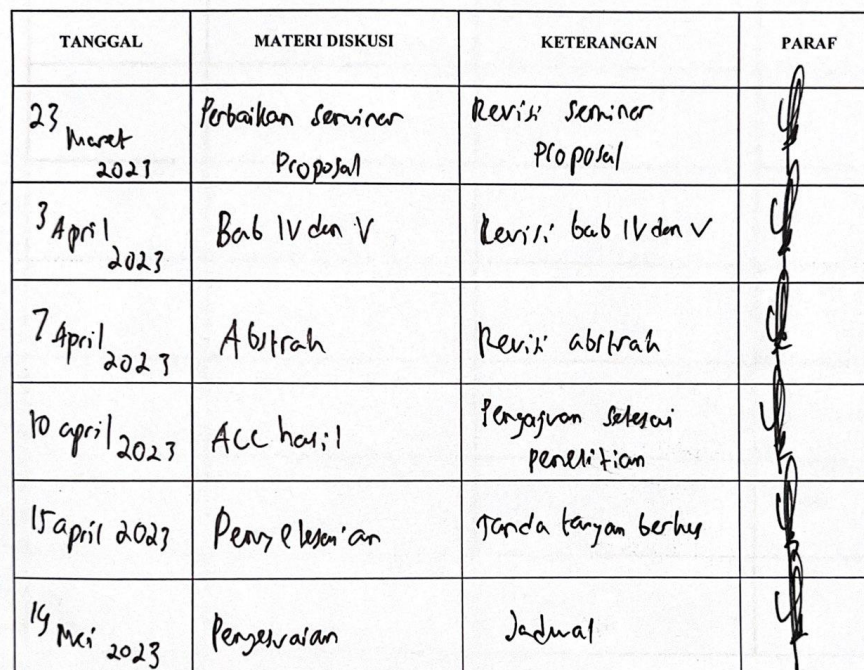 TANGGAL MATERI DISKUSI KETERANGAN PARAF
23 Maret 2023 Perbaikan seminar Proposal Revisi seminar Proposal
3 April 2023 Bab IV dan V Revisi bab IV dan V
7 April 2023 Abstrak Revisi abstrak
10 april 2023 ACC hasil Pengajuan selesai penelitian
15 april 2023 Penyelesaian Tanda tangan berkas
Mei 2023 Penyesuaian Jadwal